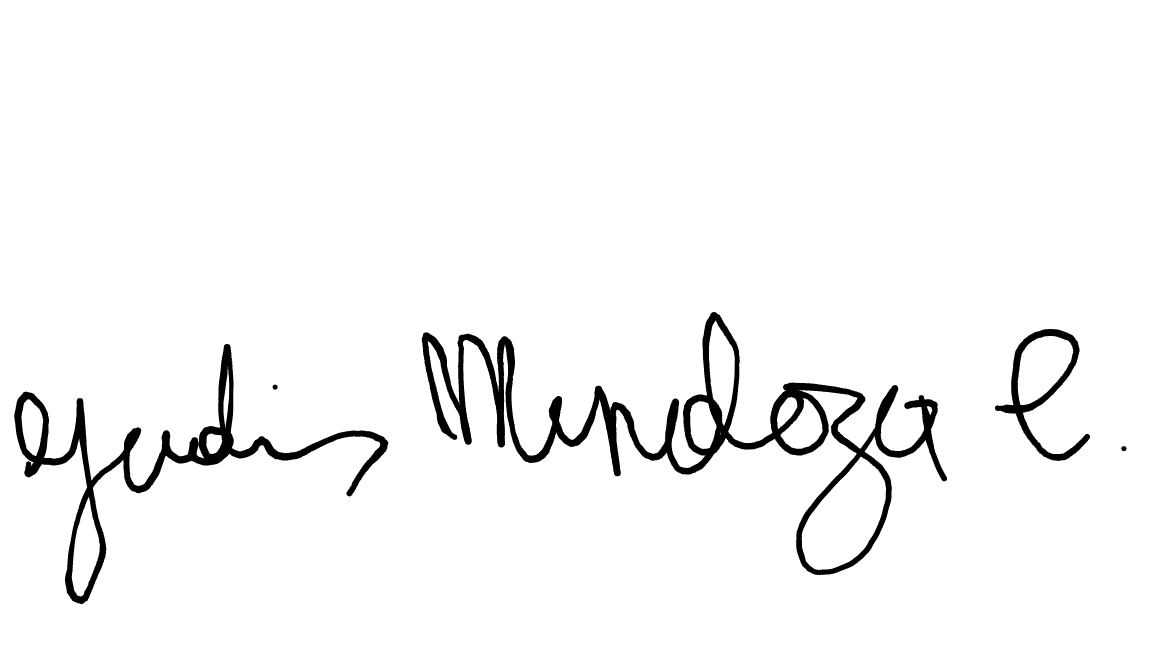 Yudis Mendoza C.